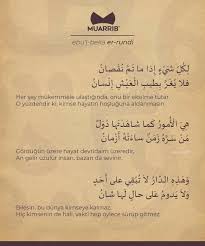 MUARRİB
ebu'l-beka er-rundi
لِكُلِّ شَيْءٍ إِذَا مَا تَمَّ نُقْصَانُ
فَلَا يُغَرَّ بِطِيبِ الْعَيْشِ إِنْسَانُ
Her şey mükemmele ulaştığında, onu bir eksilme tutar
O yüzdendir ki, kimse hayatın hoşluğuna aldanmasın
هِيَ الْأُمُورُ كَمَا شَاهَدْتَهَا دُوَلٌ
مَنْ سَرَّهُ زَمَنٌ سَاءَتْهُ أَزْمَانُ
Gördüğün üzere hayat devridaim üzeredir,
An gelir üzülür insan, bazen de sevinir.
وَهَذِهِ الدَّارُ لَا تُبْقِي عَلَى أَحَدٍ
وَلَا يَدُومُ عَلَى حَالٍ لَهَا شَانُ
Eklesin, bu dünya kimseye kalmaz,
Hiç kimsenin de hali, vakti hep öylece sürüp gitmez